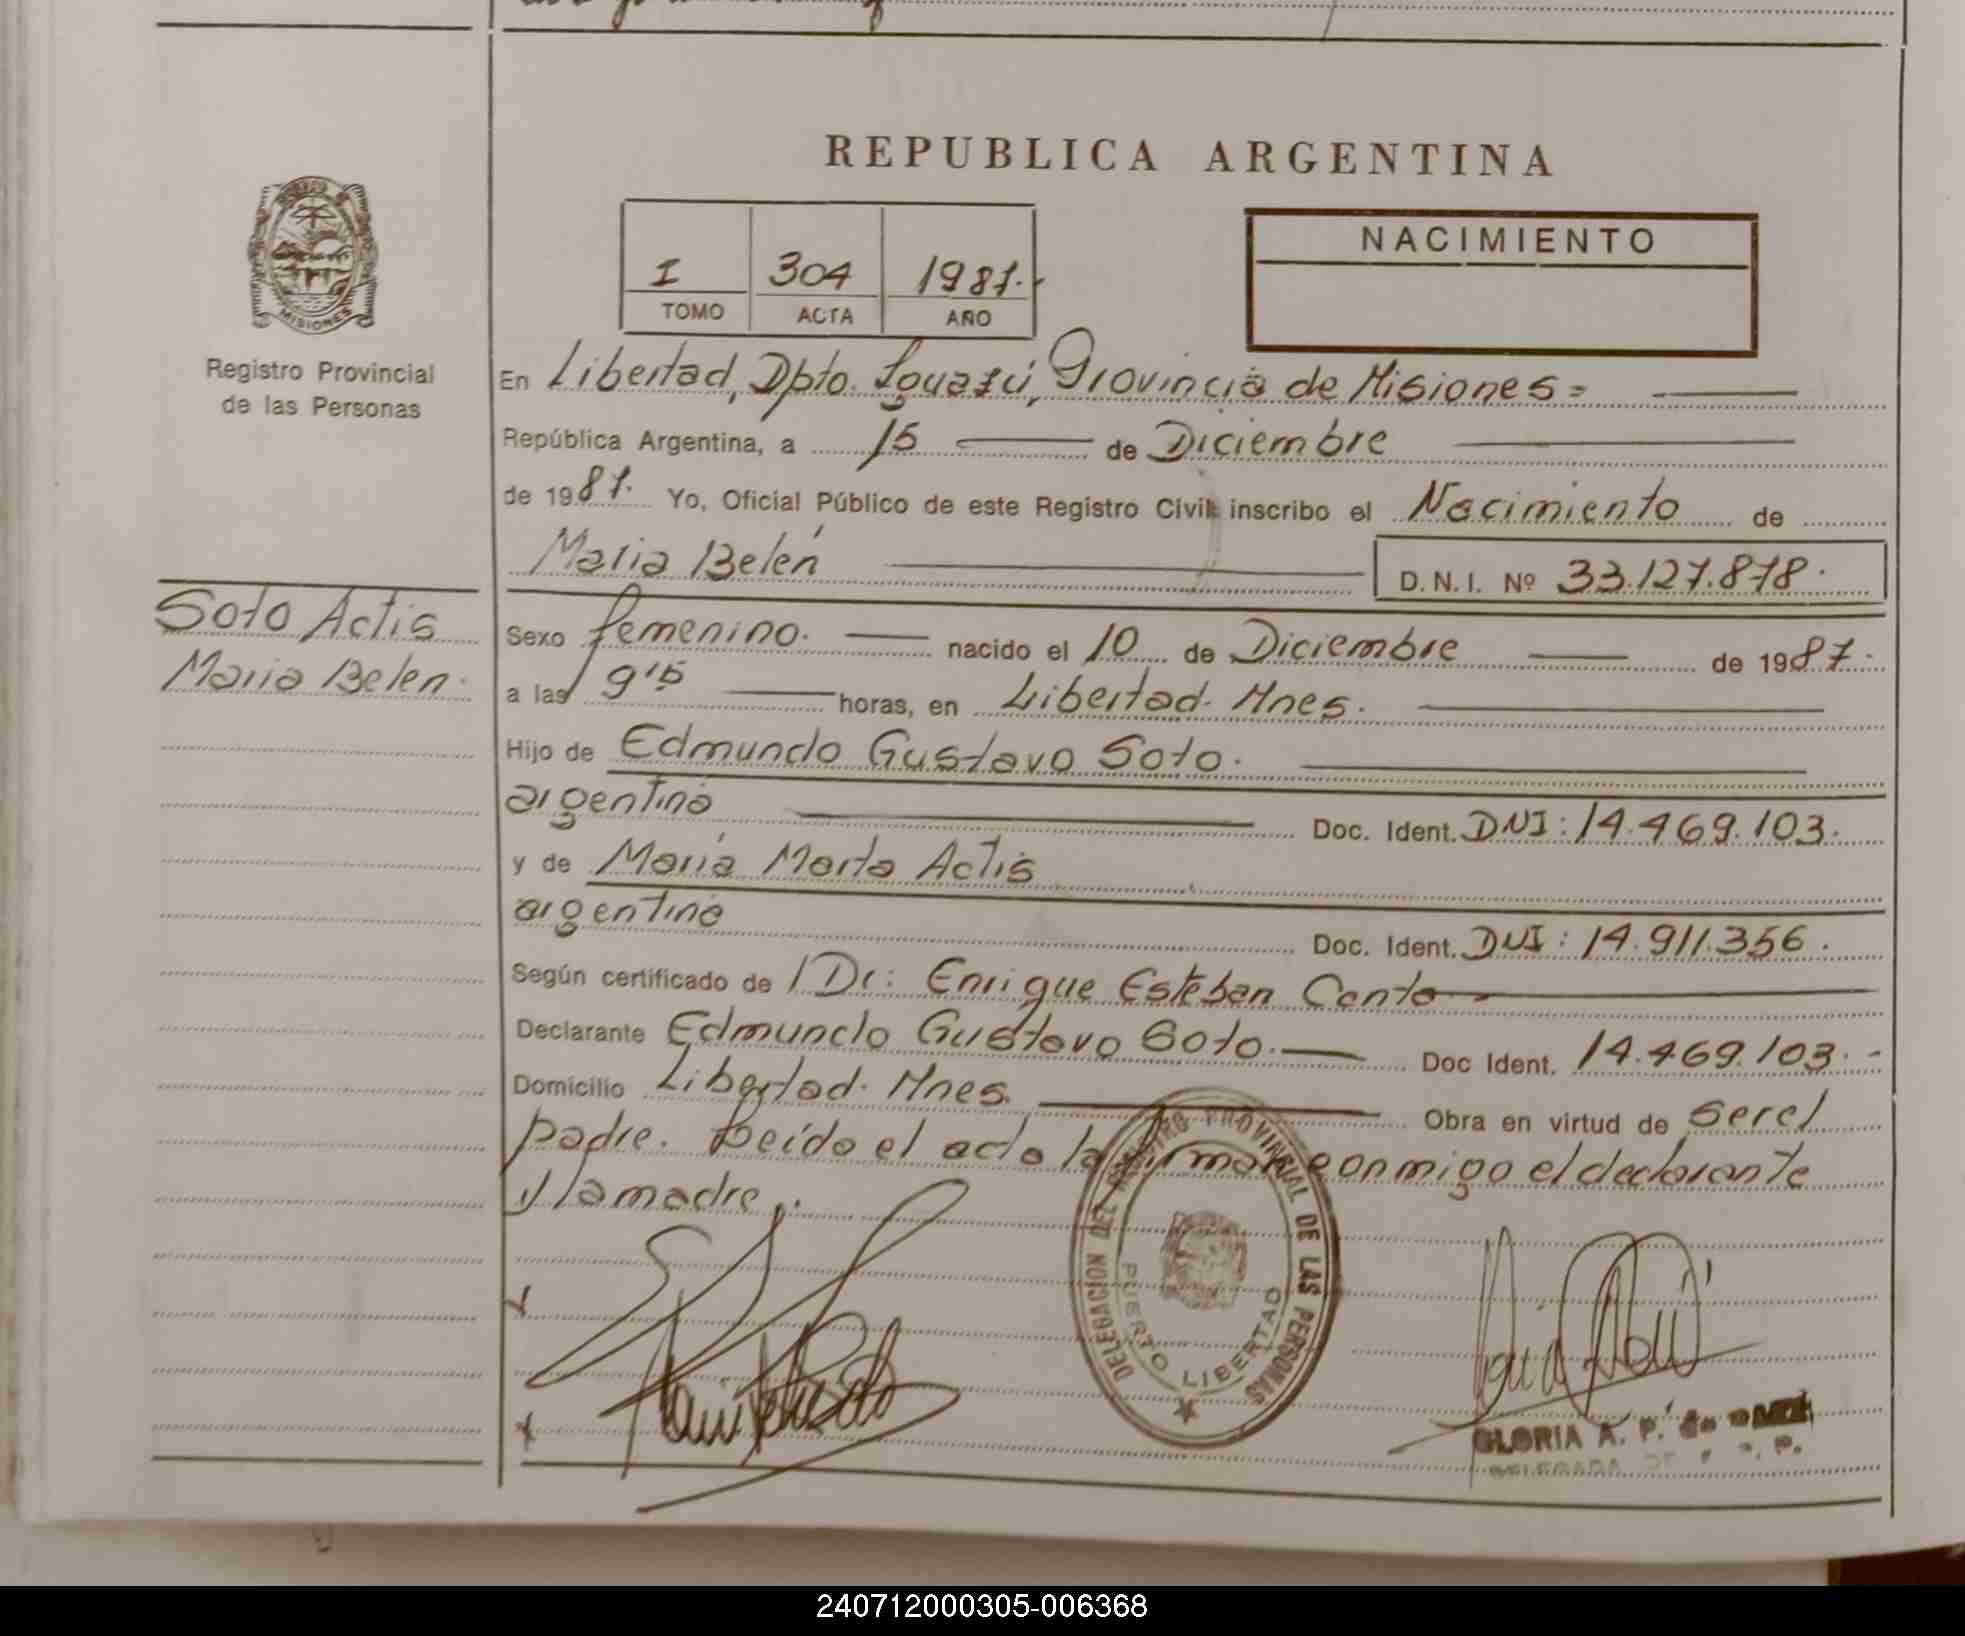 REPUBLICA ARGENTINA
MISIONES
Registro Provincial
de las Personas
I 304 1987.
TOMO ACTA AÑO
NACIMIENTO
En Libertad, Dpto. Iguazú, Provincia de Misiones =
República Argentina, a 15 de Diciembre
de 1987. Yo, Oficial Público de este Registro Civil inscribo el Nacimiento de
Maria Belén D.N.I. Nº 33.127.878.
Soto Actis
Maria Belen.
Sexo femenino. nacido el 10 de Diciembre de 1987.
a las 9'15 horas, en Libertad. Mnes.
Hijo de Edmundo Gustavo Soto.
argentino Doc. Ident. DNI: 14.469.103.
y de María Marta Actis
argentina Doc. Ident. DNI: 14.911.356.
Según certificado de Dr: Enrique Esteban Canto
Declarante Edmundo Gustavo Soto. Doc Ident. 14.469.103.
Domicilio Libertad. Mnes. Obra en virtud de ser el
padre. Leído el acta la firman conmigo el declarante
y la madre.
DELEGACION DEL REGISTRO PROVINCIAL DE LAS PERSONAS
PUERTO LIBERTAD
GLORIA A. P. de
DELEGADA
240712000305-006368